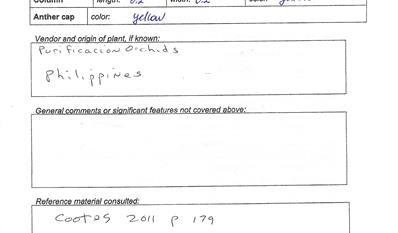 Column length: 0.2 width: 0.2 color:
Anther cap color: yellow
Vendor and origin of plant, if known:
Purificacion Orchids
Philippines
General comments or significant features not covered above:
Reference material consulted:
Cootes 2011 p 179